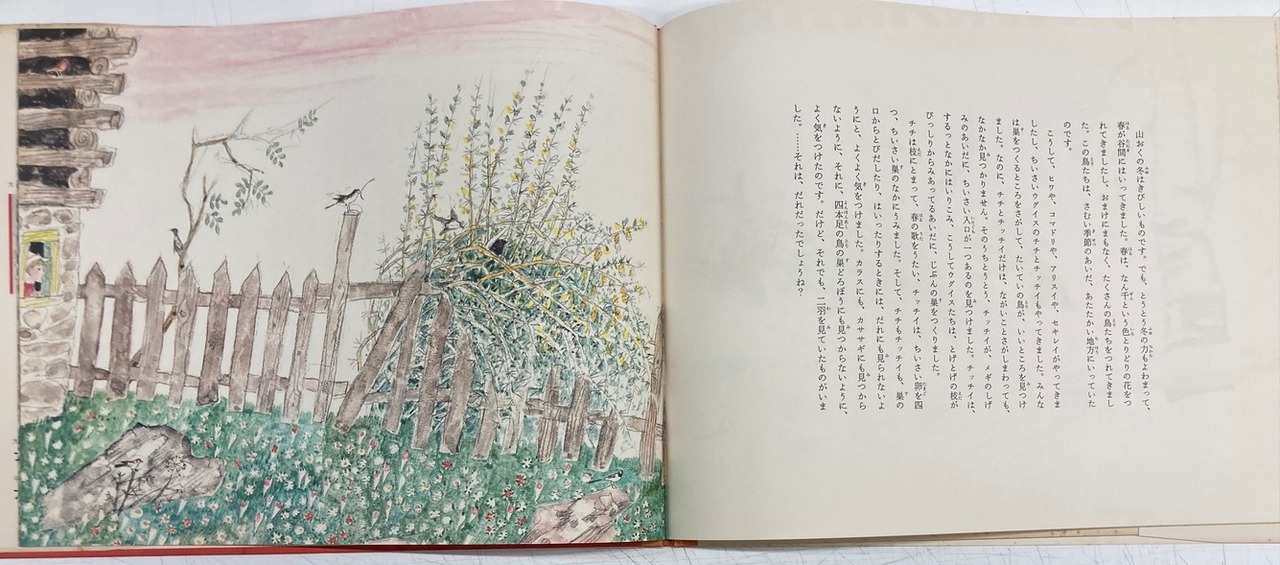 山おくの冬はきびしいものです。でも、とうとう冬の力もよわまって、
春が谷間にはいってきました。春は、なん千という色とりどりの花をつ
れてきましたし、おまけにまもなく、たくさんの鳥たちをつれてきまし
た。この鳥たちは、さむい季節のあいだ、あたたかい地方にいっていた
のです。
こうして、ヒワや、コマドリや、アリスイや、セキレイがやってきま
したし、ちいさいウグイスのチチとチッチイもやってきました。みんな
は巣をつくるところをさがして、たいていの鳥が、いいところを見つけ
ました。なのに、チチとチッチイだけは、ながいことさがしまわっても、
なかなか見つかりません。そのうちとうとう、チッチイが、メギのしげ
みのあいだに、ちいさい入口が一つあるのを見つけました。チッチイは、
するっとなかにはいりこみ、こうしてウグイスたちは、とげとげの枝が
びっしりからみあってるあいだに、じぶんの巣をつくりました。
チチは枝にとまって、春の歌をうたい、チッチイは、ちいさい卵を四
つ、ちいさい巣のなかにうみました。そして、チチもチッチイも、巣の
口からとびだしたり、はいったりするときには、だれにも見られないよ
うにと、よくよく気をつけました。カラスにも、カササギにも見つから
ないように、それに、四本足の鳥の巣どろぼうにも見つからないように、
よく気をつけたのです。だけど、それでも、二羽を見ていたものがいま
した。……それは、だれだったでしょうね?